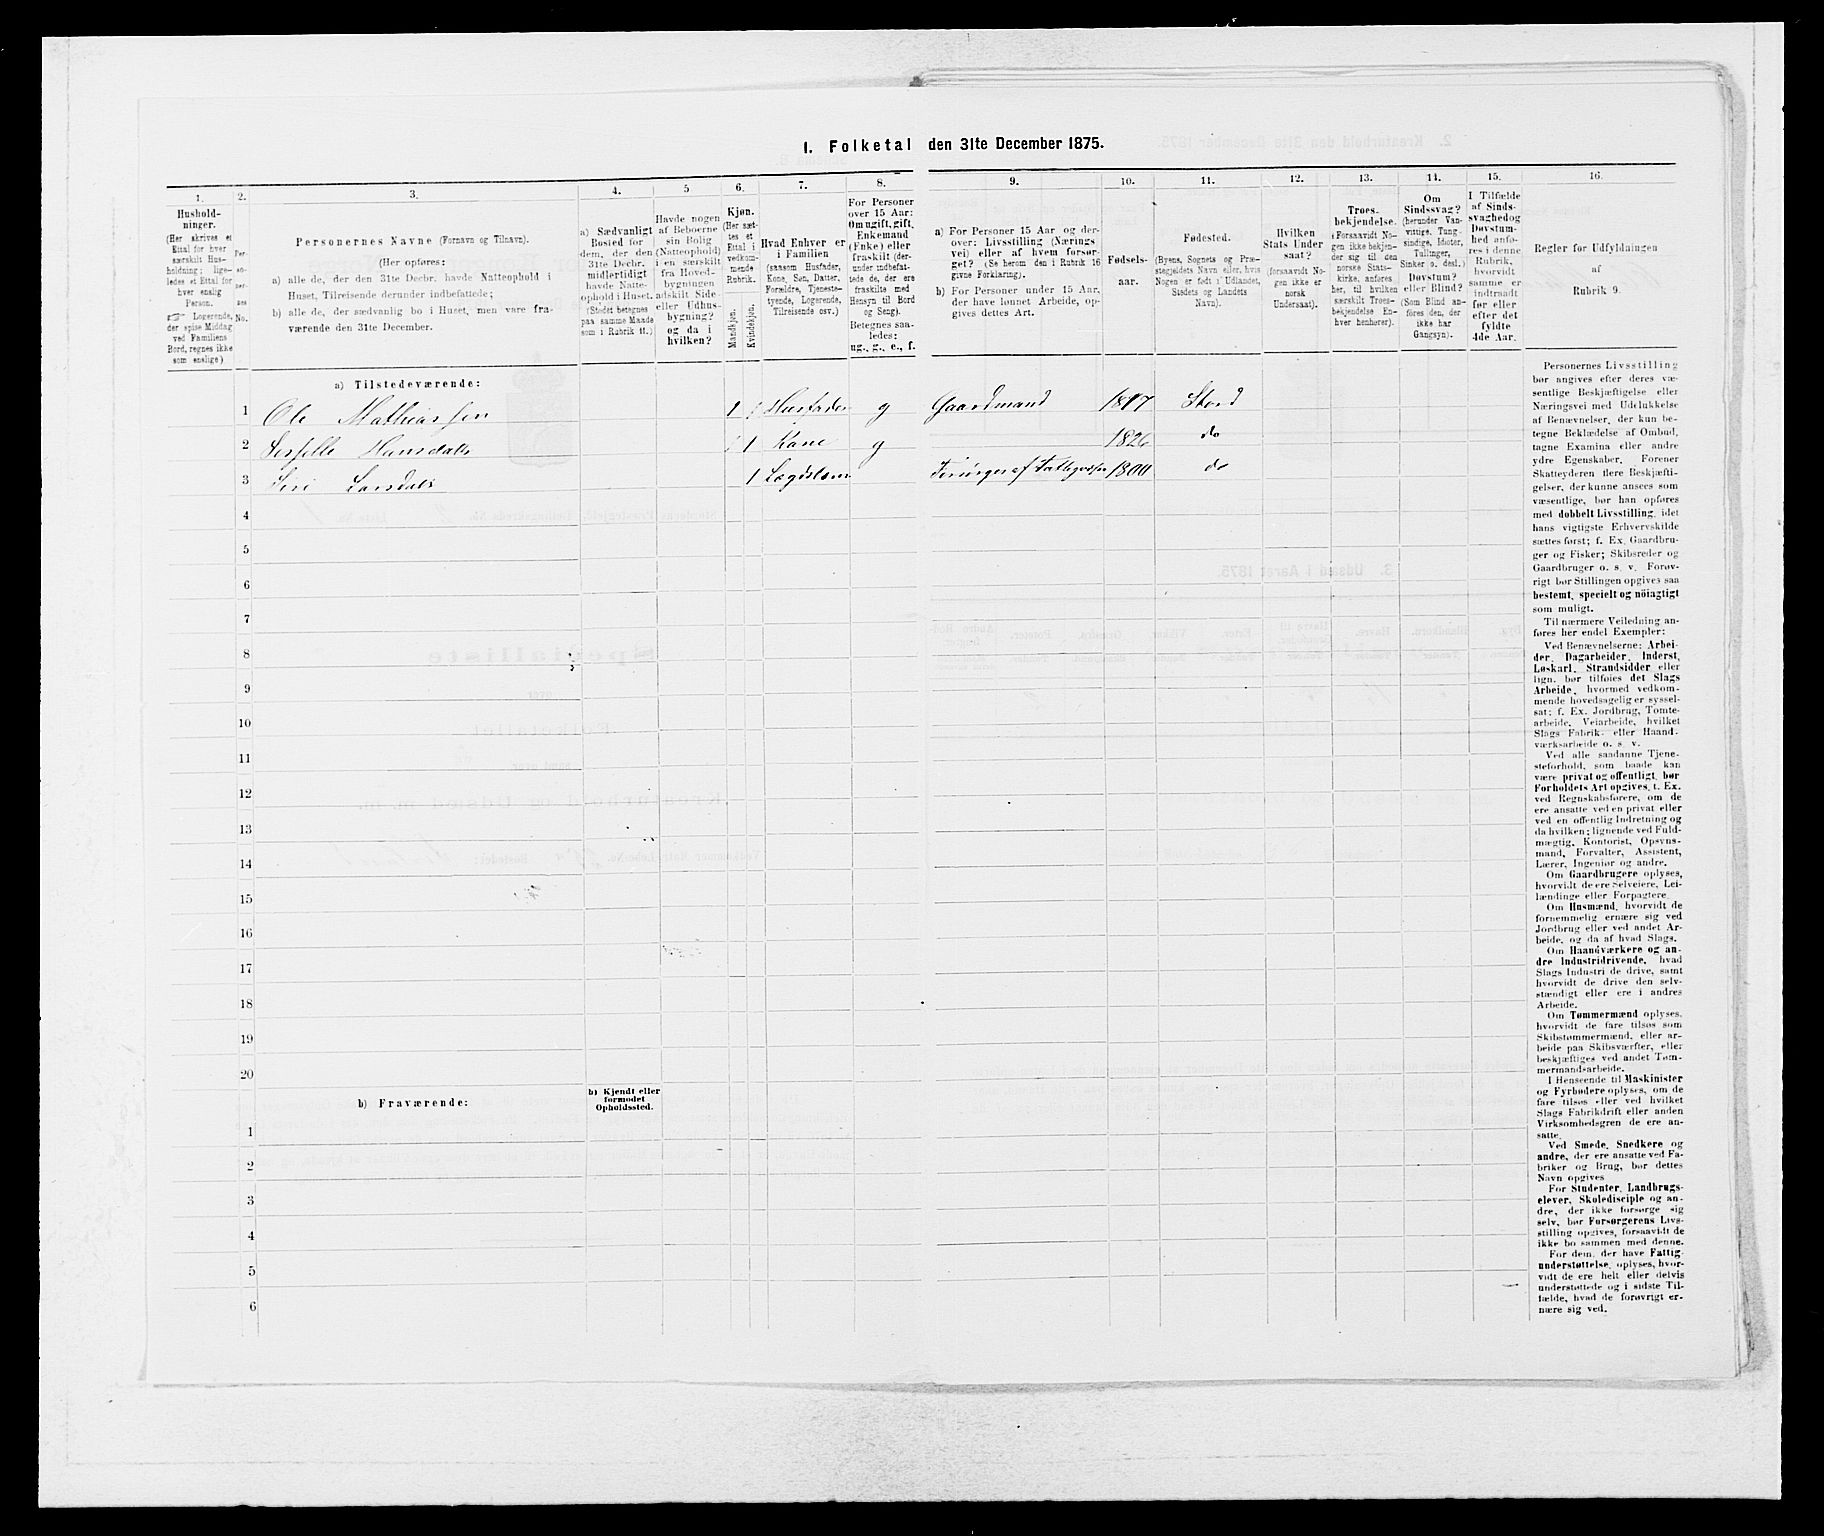 1. Folketal den 31te December 1875.
1.
Hushold-
ninger.
(Her skrives et
Ettal for hver
særskilt Hus-
holdning; lige-
ledes et Ettal for
hver enslig
Person.
☞ Logerende,
der spise Middag
ved Familiens
Bord, regnes ikke
som enslige)
2.
No.
3.
Personernes Navne (Fornavn og Tilnavn).
(Her opføres:
a) alle de, der den 31te Decbr. havde Natteophold i
Huset, Tilreisende derunder indbefattede;
b) alle de, der sædvanlig bo i Huset, men vare fra-
værende den 31te December.
4.
a) Sædvanligt
Bosted for
dem, der den
31te Decbr.
midlertidigt
havde Natte-
ophold i Huset.
(Stedet betegnes
paa samme Maade
som i Rubrik 11.)
5
Havde nogen
af Beboerne
sin Bolig
(Natteophold)
i en særskilt
fra Hoved-
bygningen
adskilt Side-
eller Udhus-
bygning?
og da i
hvilken?
6.
Kjøn.
(Her sæt-
tes et
Ettal i
vedkom-
mende
Rubrik.
Mandkjøn.
Kvindekjøn.
7.
Hvad Enhver er
i Familien
(saasom Husfader,
Kone, Søn, Datter,
Forældre, Tjeneste-
tyende, Logerende,
Tilreisende osv.)
8.
For Personer
over 15 Aar:
Om ugift, gift,
Enkemand
(Enke) eller
fraskilt (der-
under indbefat-
tede de, der ere
fraskilte med
Hensyn til Bord
og Seng).
Betegnes saa-
ledes:
ug., g., e., f.
9.
a) For Personer 15 Aar og der-
over: Livsstilling (Nærings
vei) eller af hvem forsør-
get? (Se herom den i Rubrik 16
givne Forklaring).
b) For Personer under 15 Aar,
der have lønnet Arbeide, op-
gives dettes Art.
10.
Fødsels-
aar.
11.
Fødested.
(Byens, Sognets og Præ-
stegjeldets Navn eller, hvis
Nogen er født i Udlandet,
Stedets og Landets
Navn).
12.
Hvilken
Stats Under
saat?
(forsaavidt No-
gen ikke er
norsk
Undersaat).
13.
Troes-
bekjendelse.
(Forsaavidt No-
gen ikke bekjen-
der sig til den
norske Stats-
kirke, anføres
her, til hvilken
særskilt Troes-
bekjendelse En-
hver henhører).
14.
Om
Sindssvag?
(herunder Van-
vittige, Tung-
sindige, Idioter,
Tullinger,
Sinker o. desl.)
Døvstum?
eller Blind?
(Som Blind an-
føres den, der
ikke har
Gangsyn).
15.
I Tilfælde
af Sinds-
svaghed og
Døvstum-
hed anfø-
res i denne
Rubrik,
hvorvidt
samme er
indtraadt
før eller
efter det
fyldte
4de Aar.
16.
Regler for Udfyldningen
af
Rubrik 9.
a) Tilstedeværende:
1 Ole Mathiassen 1 Husfader g Gaardmand 1817 Stord
2 Hansdatr 1 Kone g 1826 do
3 Siri Larsdatr 1 Lægdslem 1800 do
4
5
6
7
8
9
10
11
12
13
14
15
16
17
18
19
20
b) Fraværende:
b) Kjendt eller
formodet
Opholdssted.
1
2
3
4
5
6
Personernes Livsstilling
bør angives efter deres væ-
sentlige Beskjæftigelse eller
Næringsvei med Udelukkelse
af Benævnelser, der kun be-
tegne Beklædelse af Ombud,
tagne Examina eller andre
ydre Egenskaber. Forener
Skatteyderen flere Beskjæfti-
gelser, der kunne ansees som
væsentlige, bør han opføres
med dobbelt Livsstilling, idet
hans vigtigste Erhvervskilde
sættes først; f. Ex. Gaardbru-
ger og Fisker; Skibsreder og
Gaardbruger o. s. v. Forøv-
rigt bør Stillingen opgives saa
bestemt, specielt og nöiagtigt
som muligt.
Til nærmere Veiledning an-
føres her endel Exempler:
Ved Benævnelserne: Arbei-
der, Dagarbeider, Inderst,
Løskarl, Strandsidder eller
lign. bør tilføies det Slags
Arbeide, hvormed vedkom-
mende hovedsagelig er syssel-
sat; f. Ex. Jordbrug, Tomte-
arbeide, Veiarbeide, hvilket
Slags Fabrik- eller Haand-
værksarbeide o. s. v.
Ved alle saadanne Tjene-
steforhold, som baade kan
være privat og offentligt, bør
Forholdets Art opgives, t. Ex.
ved Regnskabsførere, om de
ere ansatte ved en privat eller
ved en offentlig Indretning og
da hvilken; lignende ved Fuld-
mægtig, Kontorist, Opsyns-
mand, Forvalter, Assistent,
Lærer, Ingeniør og andre.
Om Gaardbrugere oplyses,
hvorvidt de ere Selveiere, Lei-
lændinge eller Forpagtere.
Om Husmænd, hvorvidt de
fornemmelig ernære sig ved
Jordbrug eller ved andet Ar-
beide, og da af hvad Slags.
Om Haandværkere og an-
dre Industridrivende, hvad
Slags Industri de drive, samt
hvorvidt de drive den selv-
stændigt eller ere i andres
Arbeide.
Om Tømmermænd oplyses,
hvorvidt de fare tilsøs som
Skibstømmermænd, eller ar-
beide paa Skibsværfter, eller
beskjæftiges ved andet Tøm-
mermandsarbeide.
I Henseende til Maskinister
og Fyrbødere oplyses, om de
fare tilsøs eller ved hvilket
Slags Fabrikdrift eller anden
Virksomhedsgren de ere an-
satte.
Ved Smede, Snedkere og
andre, der ere ansatte ved Fa-
briker og Brug, bør dettes
Navn opgives
For Studenter, Landbrugs-
elever, Skoledisciple og an-
dre, der ikke forsørge sig
selv, bør Forsørgerens Livs-
stilling opgives, forsaavidt de
ikke bo sammen med denne.
For dem, der have Fattig-
understøttelse, oplyses, hvor-
vidt de ere helt eller delvis
understøttede og i sidste Til-
fælde, hvad de forøvrigt er-
nære sig ved.